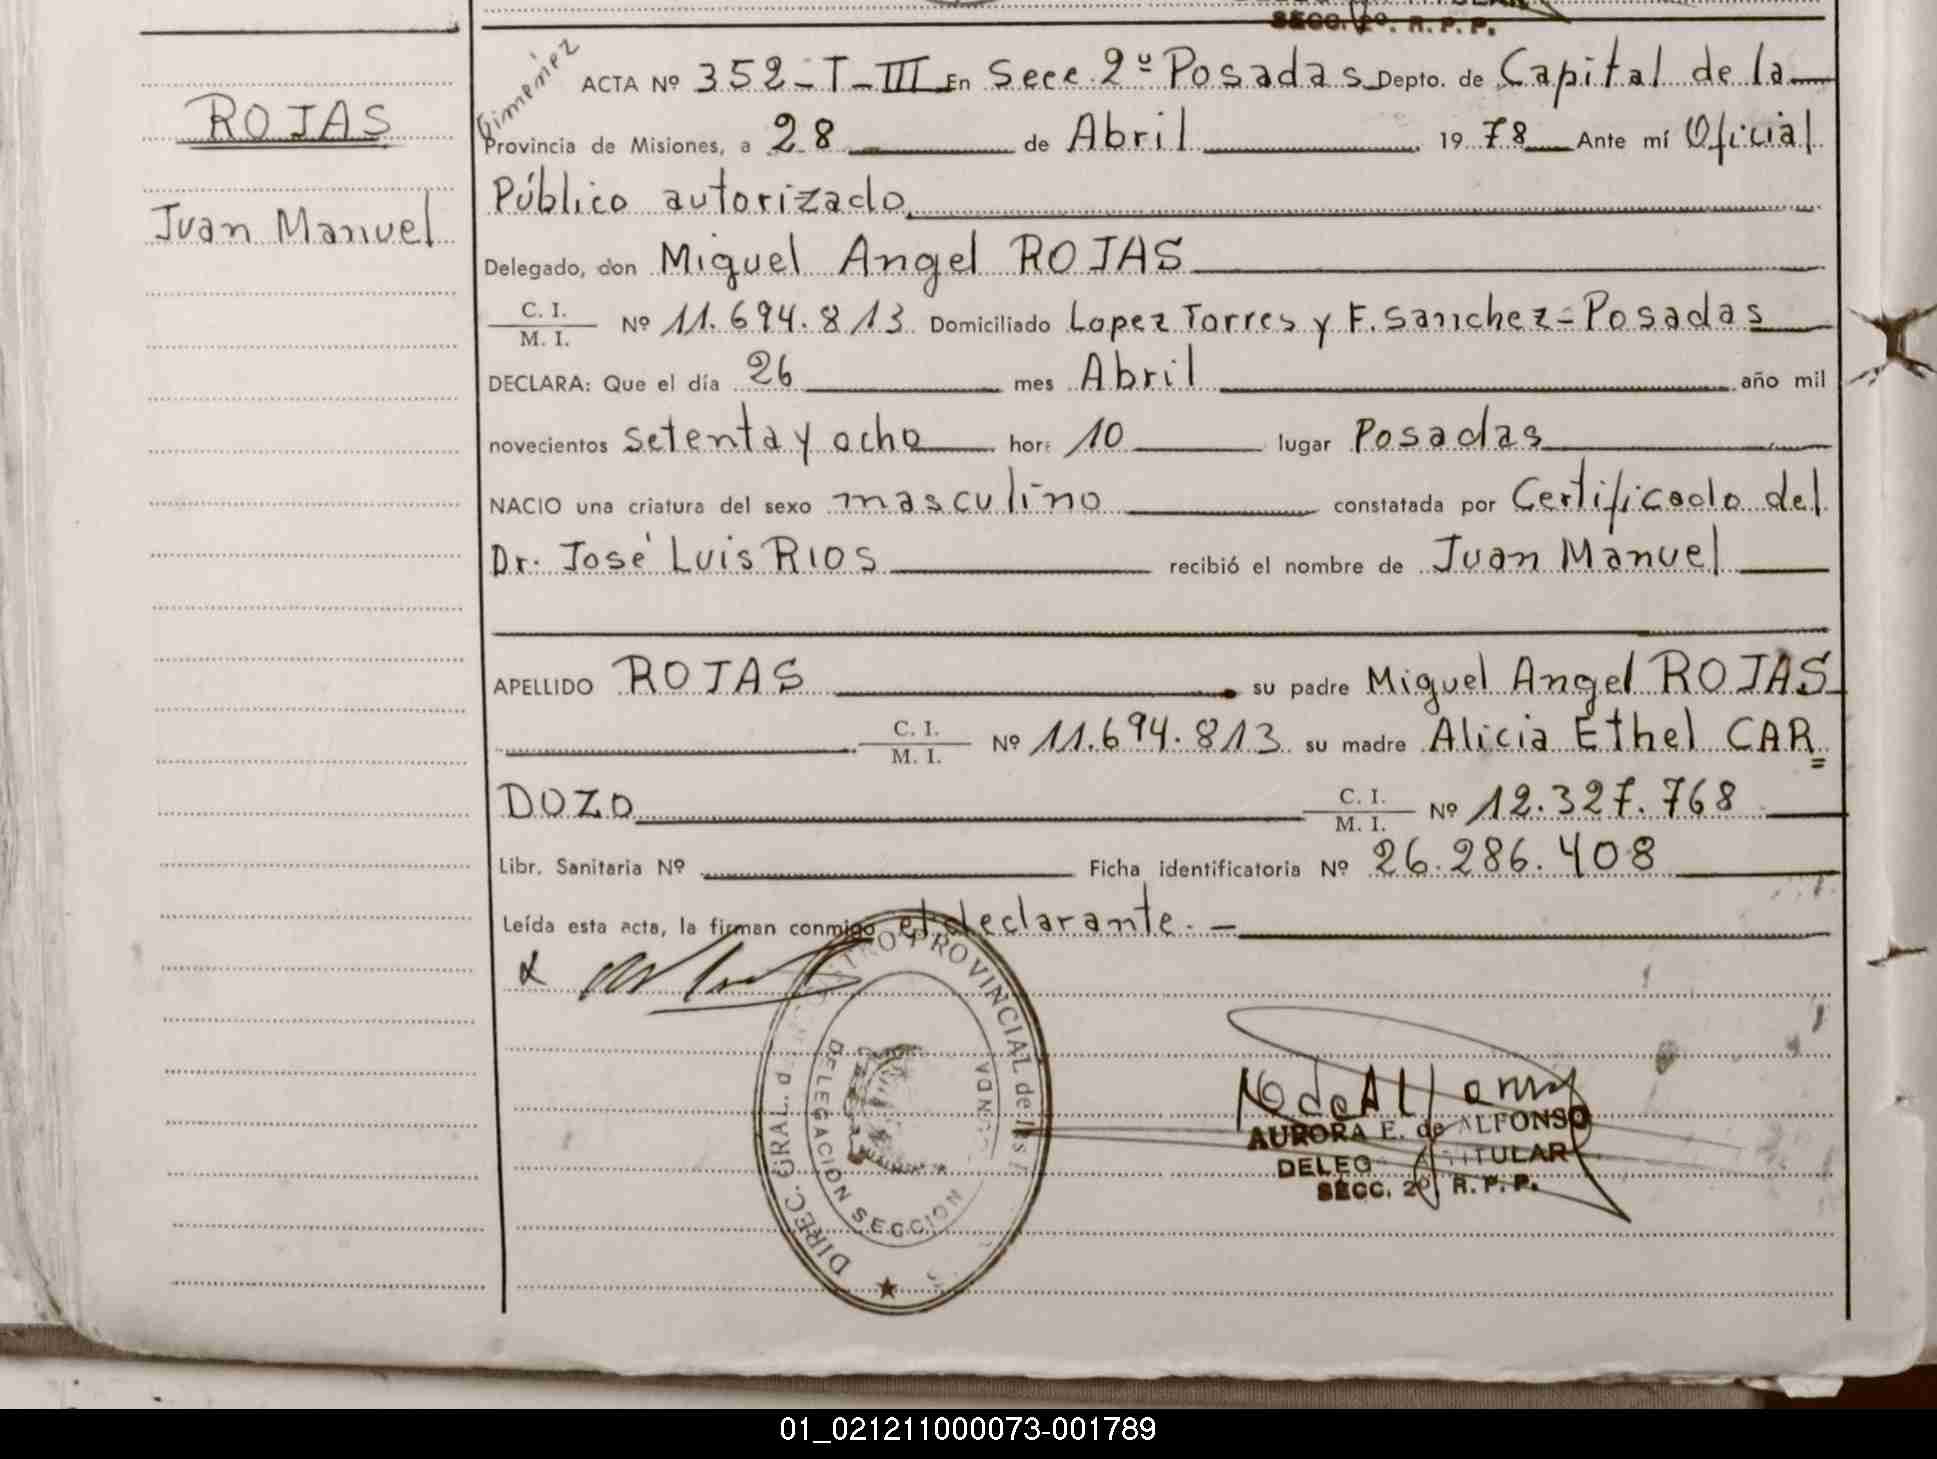 SECC. 2º. R. P. P.
Gimenez
ROJAS
Juan Manuel
ACTA Nº 352-T-III En Secc. 2º Posadas Depto. de Capital de la
Provincia de Misiones, a 28 de Abril 1978 Ante mí Oficial
Público autorizado
Delegado, don Miguel Angel ROJAS
C. I.
M. I. Nº 11.694.813 Domiciliado Lopez Torres y F. Sanchez = Posadas
DECLARA: Que el día 26 mes Abril año mil
novecientos setenta y ocho hora 10 lugar Posadas
NACIO una criatura del sexo masculino constatada por Certificado del
Dr. José Luis RIOS recibió el nombre de Juan Manuel
APELLIDO ROJAS su padre Miguel Angel ROJAS
C. I.
M. I. Nº 11.694.813 su madre Alicia Ethel CAR=
DOZO C. I.
M. I. Nº 12.327.768
Libr. Sanitaria Nº Ficha identificatoria Nº 26.286.408
Leída esta acta, la firman conmigo el declarante. -
DIREC. GRAL. d PROVINCIAL de las
DELEGACIÓN SECCION
AURORA E. de ALFONSO
DELEG TITULAR
SECC. 2º R. P. P.
01_021211000073-001789